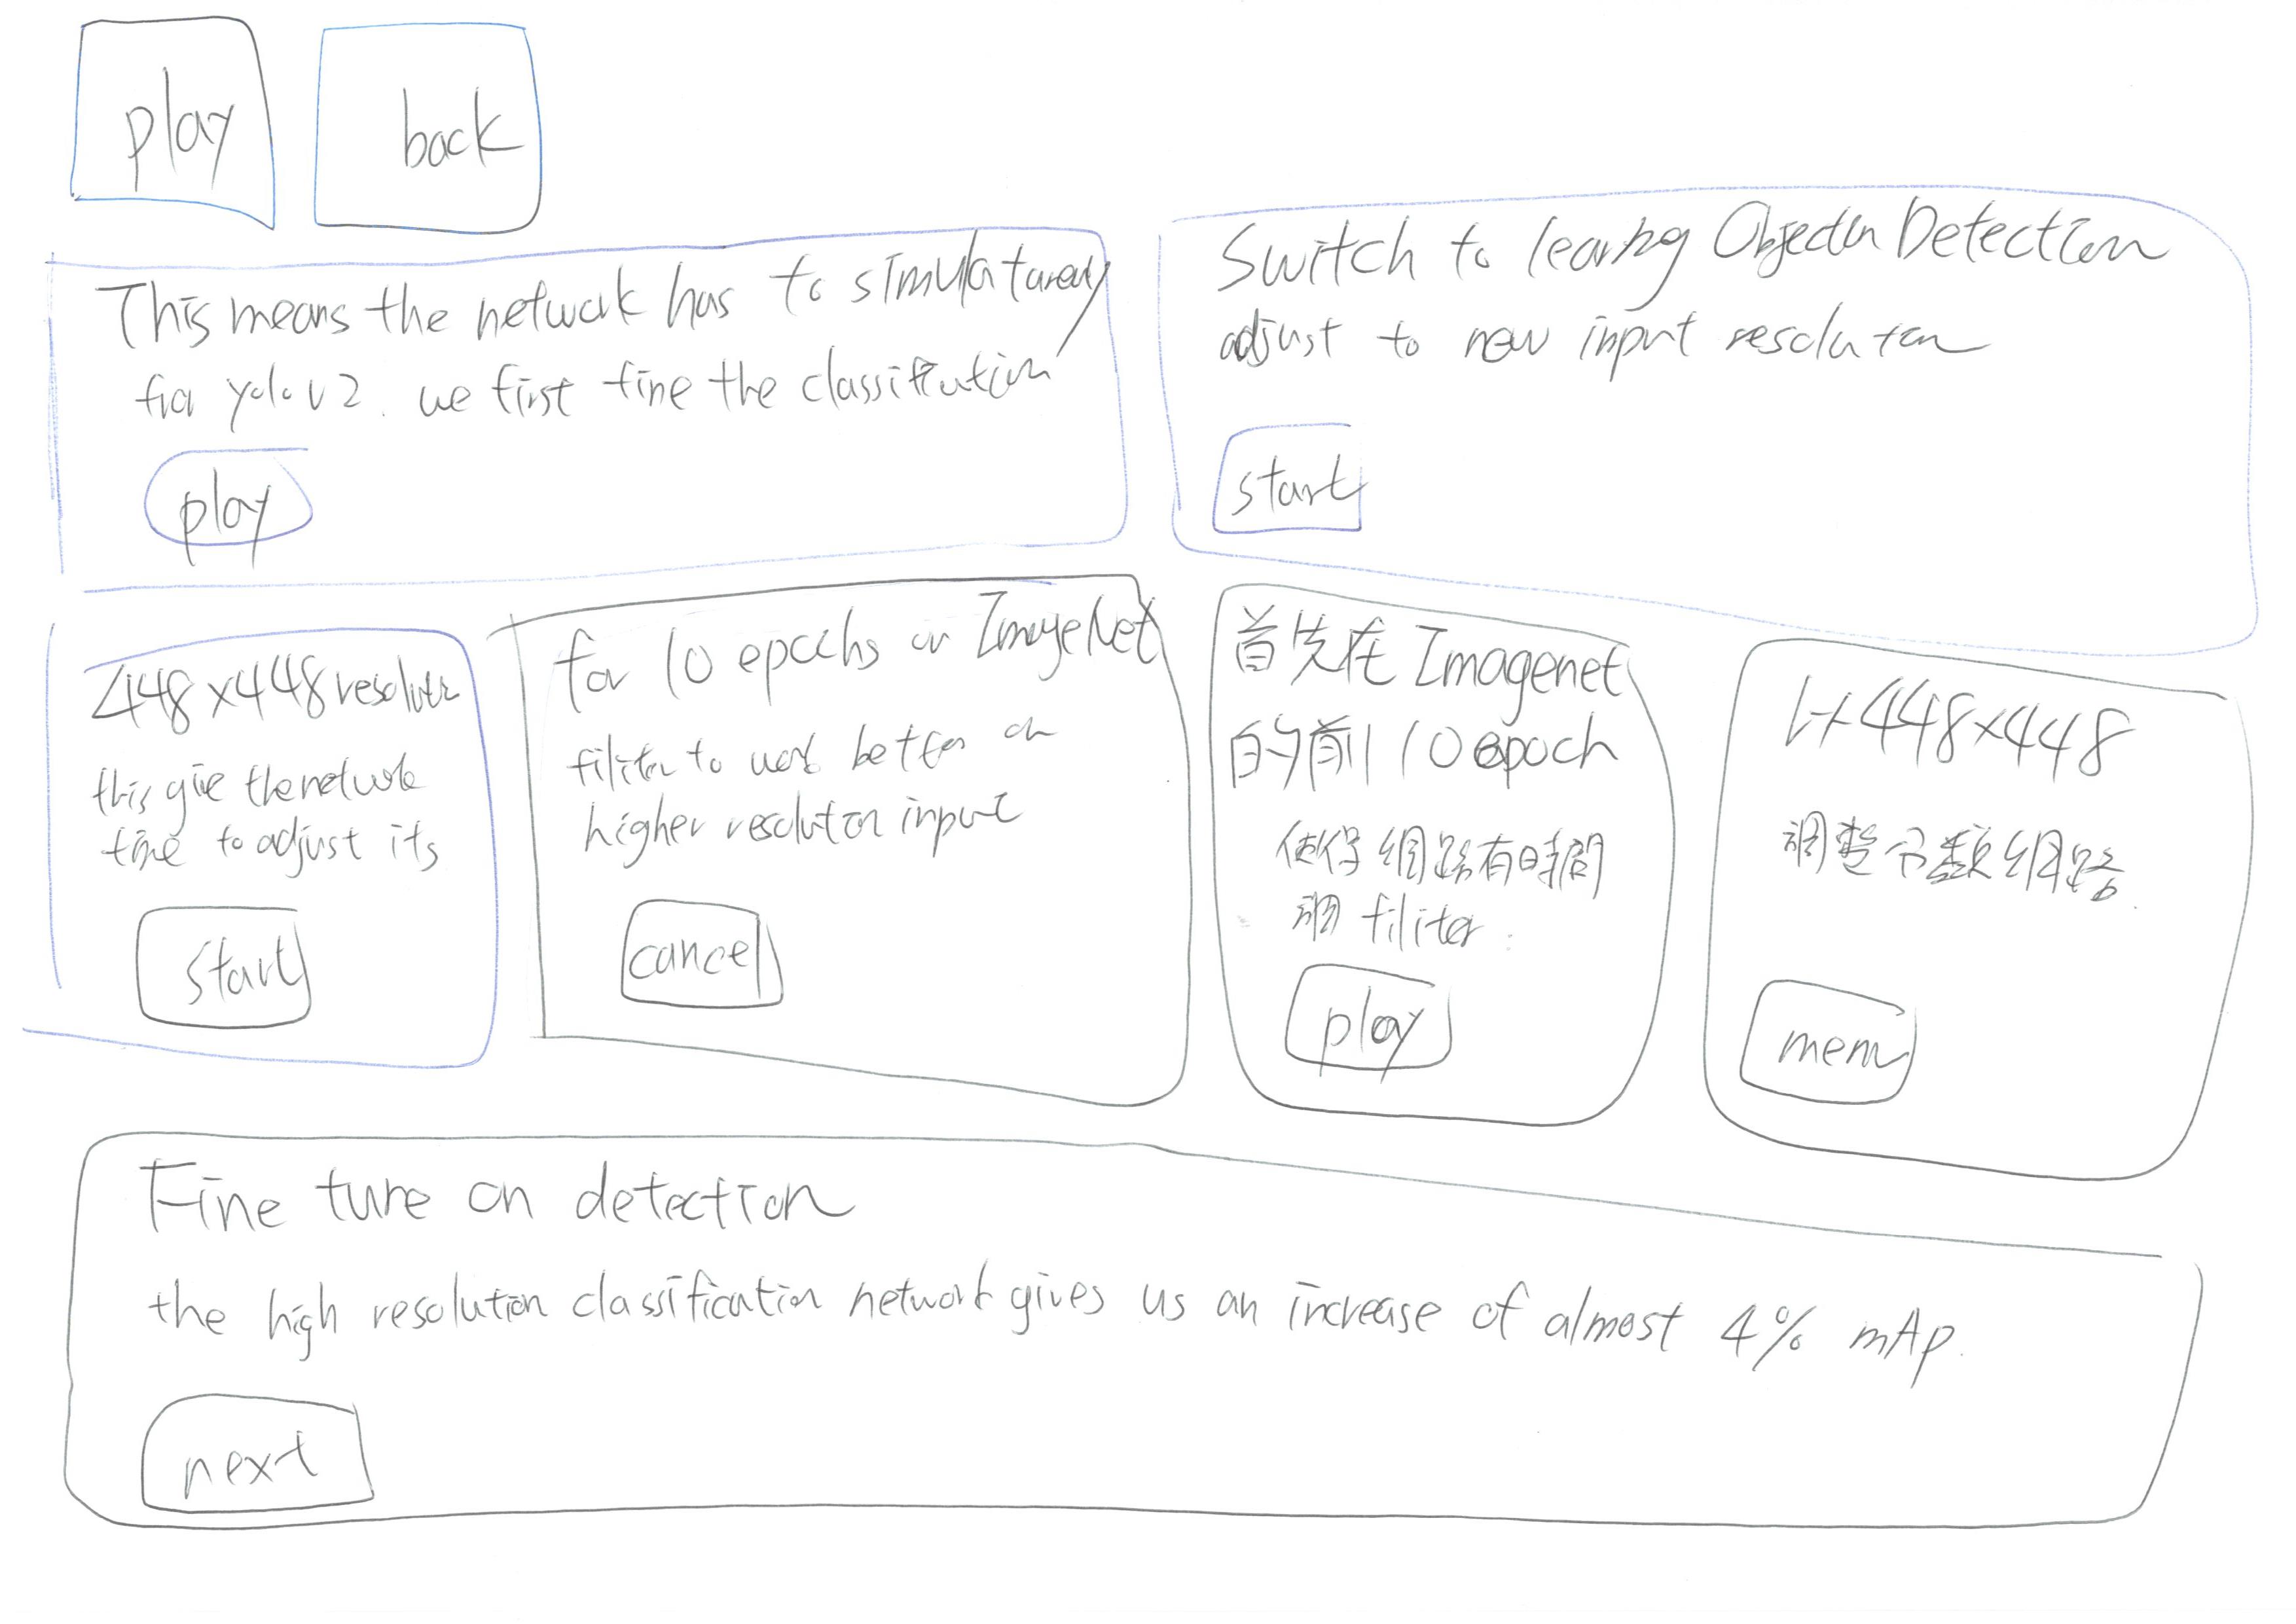 play
back
This means the network has to simulataneously
for yolo v2. we first fine the classification
play
Switch to learing Objection Detection
adjust to new input resolution
start
448x448 resolution
this give the network
time to adjust its
start
for 10 epochs on ImageNet
filiter to work better on
higher resolution input
cancel
首先在 Imagenet
的前 10 epoch
使得網路有時間
調 filiter
play
以448x448
調整分類網路
menu
Fine ture on detection
the high resolution classification network gives us an increase of almost 4% mAp.
next